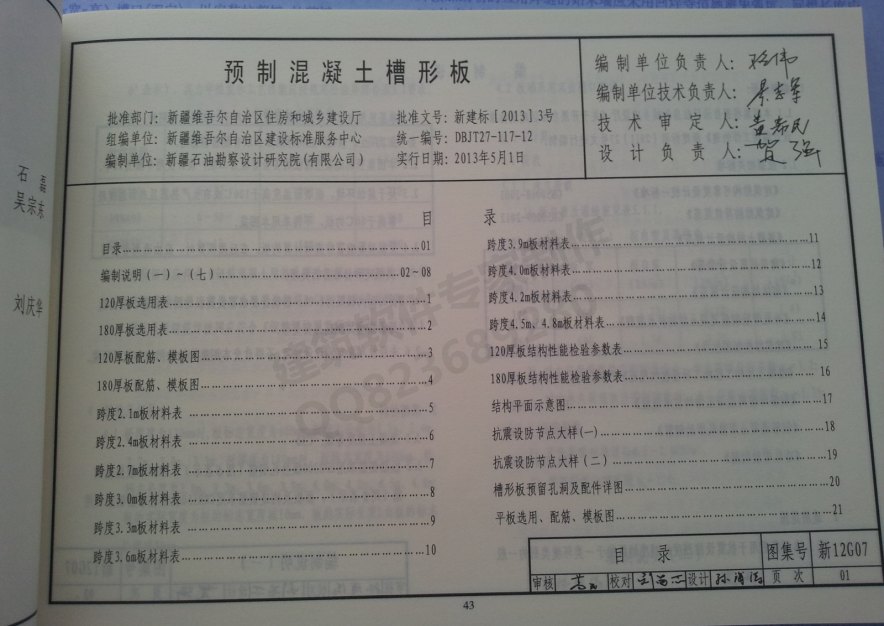 预制混凝土槽形板
批准部门：新疆维吾尔自治区住房和城乡建设厅 批准文号：新建标[2013]3号
组编单位：新疆维吾尔自治区建设标准服务中心 统一编号：DBJT27-117-12
编制单位：新疆石油勘察设计研究院(有限公司) 实行日期：2013年5月1日
编制单位负责人：
编制单位技术负责人：
技术审定人：
设计负责人：贺强
石磊
吴宗东
刘庆华
目录
目录……01
编制说明(一)~(七)……02~08
120厚板选用表……1
180厚板选用表……2
120厚板配筋、模板图……3
180厚板配筋、模板图……4
跨度2.1m板材料表……5
跨度2.4m板材料表……6
跨度2.7m板材料表……7
跨度3.0m板材料表……8
跨度3.3m板材料表……9
跨度3.6m板材料表……10
跨度3.9m板材料表……11
跨度4.0m板材料表……12
跨度4.2m板材料表……13
跨度4.5m、4.8m板材料表……14
120厚板结构性能检验参数表……15
180厚板结构性能检验参数表……16
结构平面示意图……17
抗震设防节点大样(一)……18
抗震设防节点大样(二)……19
槽形板预留孔洞及配件详图……20
平板选用、配筋、模板图……21
目录 图集号 新12G07
审核 校对 设计 页次 01
43